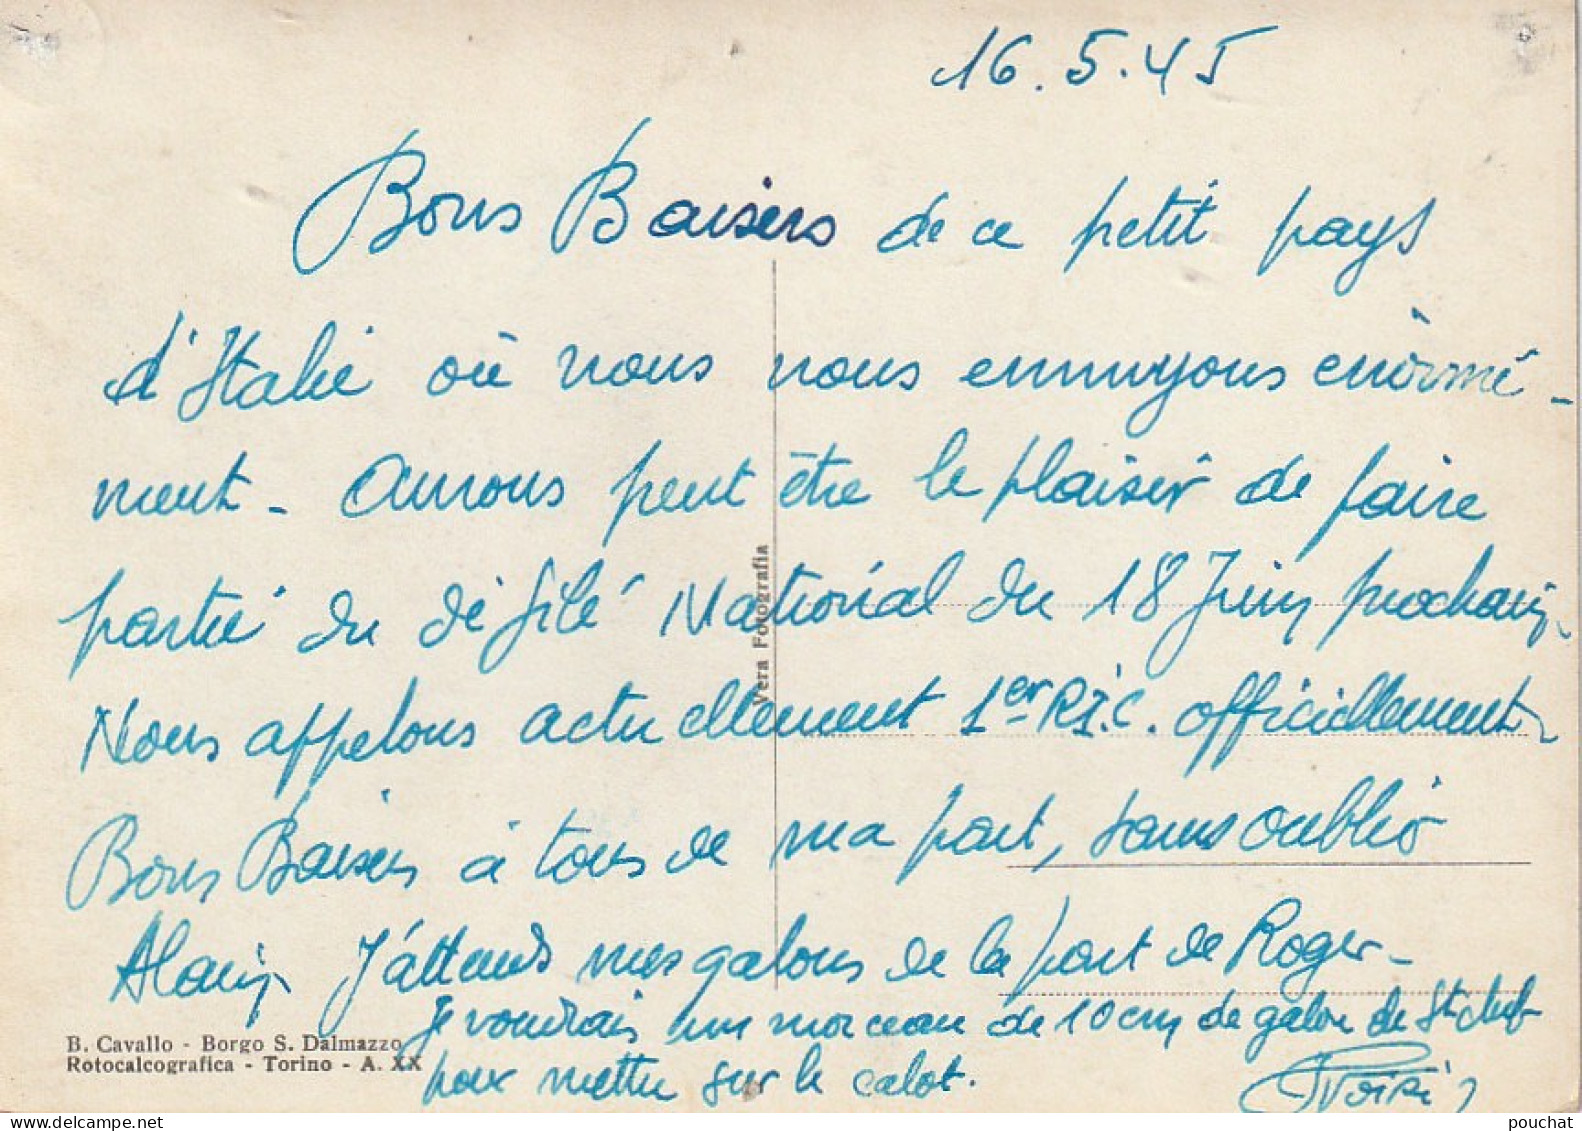 16.5.45
Bons Baisers de ce petit pays
d'Italie où nous nous ennuyons enormé-
ment - aurons peut être le plaisir de faire
partie du défilé National du 18 Juin prochain.
Nous appelons actuellement 1er R.I.C. officiellement.
Bons Baisers à tous de ma part, sans oublier
Alain. J'attends mes galons de la part de Roger -
Je voudrais un morceau de 10 cm de galon de
pour mettre sur le calot.
Vera Fotografia
B. Cavallo - Borgo S. Dalmazzo
Rotocalcografica - Torino - A. XX
pouchat